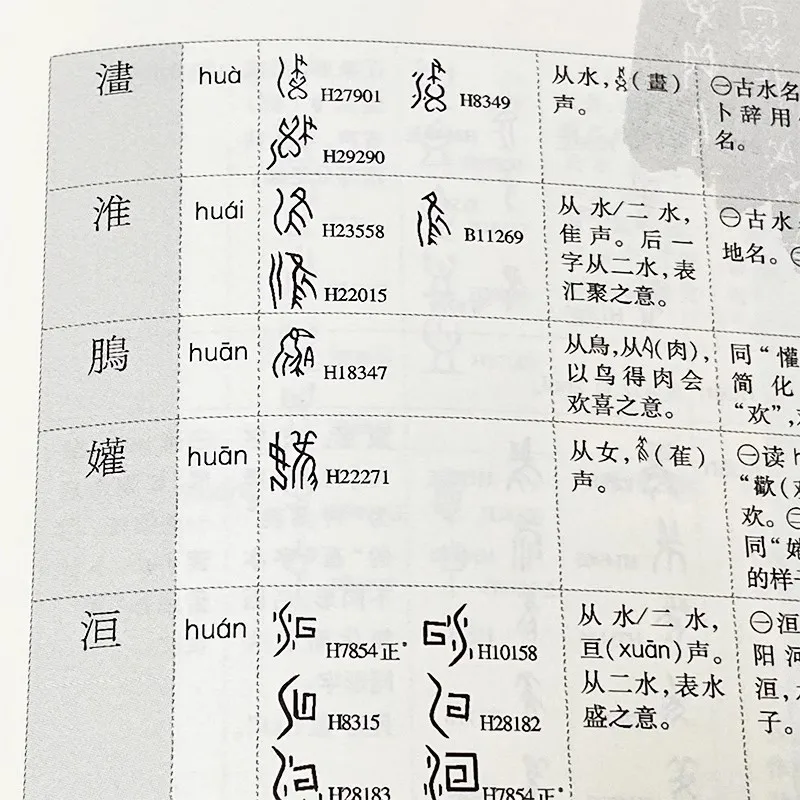 澅 huà H27901 H8349 从水,(畫) ㊀古水名
H29290 声。 卜辞用
名。
淮 huái H23558 B11269 从水/二水, ㊀古水
H22015 隹声。后一 地名。
字从二水,表
汇聚之意。
鵩 huān H18347 从鳥,从(肉), 同“懽
以鸟得肉会 简化
欢喜之意。 “欢”,
孉 huān H22271 从女,(萑) ㊀读h
声。 “歡(
欢。
同“
的样
洹 huán H7854正 H10158 从水/二水, ㊀洹
H8315 H28182 亘(xuān)声。 阳河
H28183 H7854正 从二水,表水 洹,
盛之意。 子。